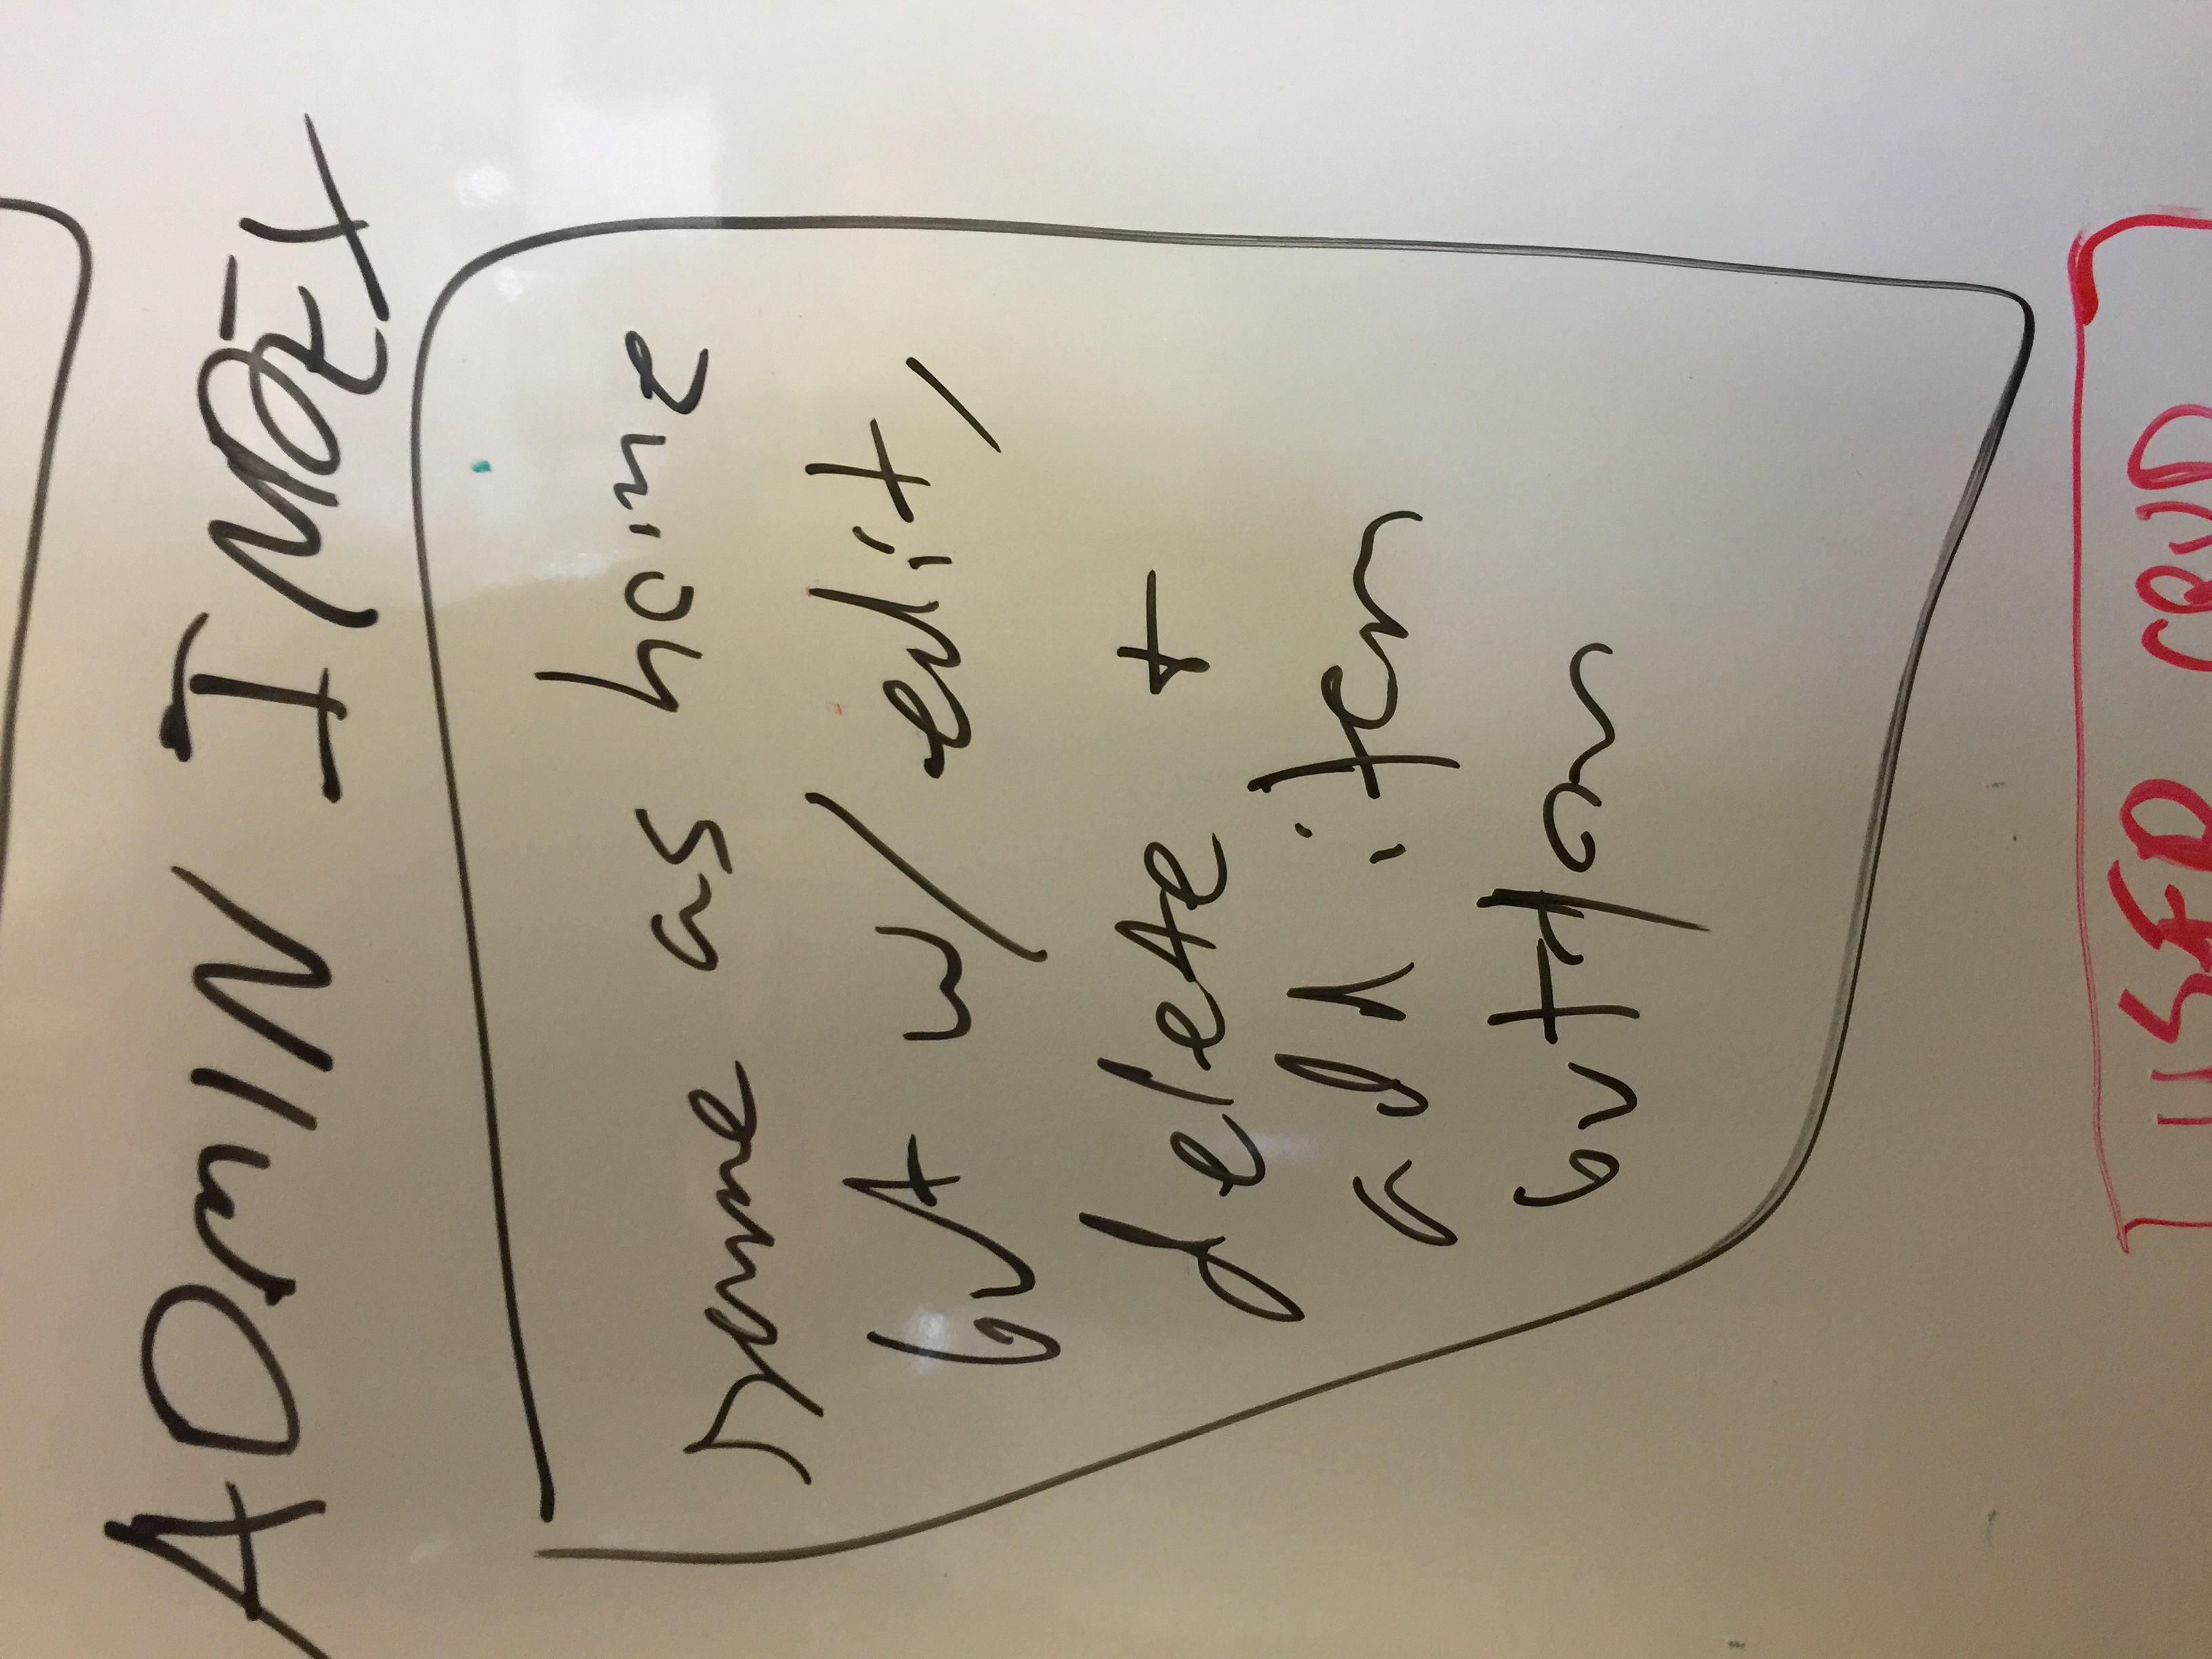 ADMIN INDEX
same as home
but w/ edit,
delete +
add item
button
USER CRUD